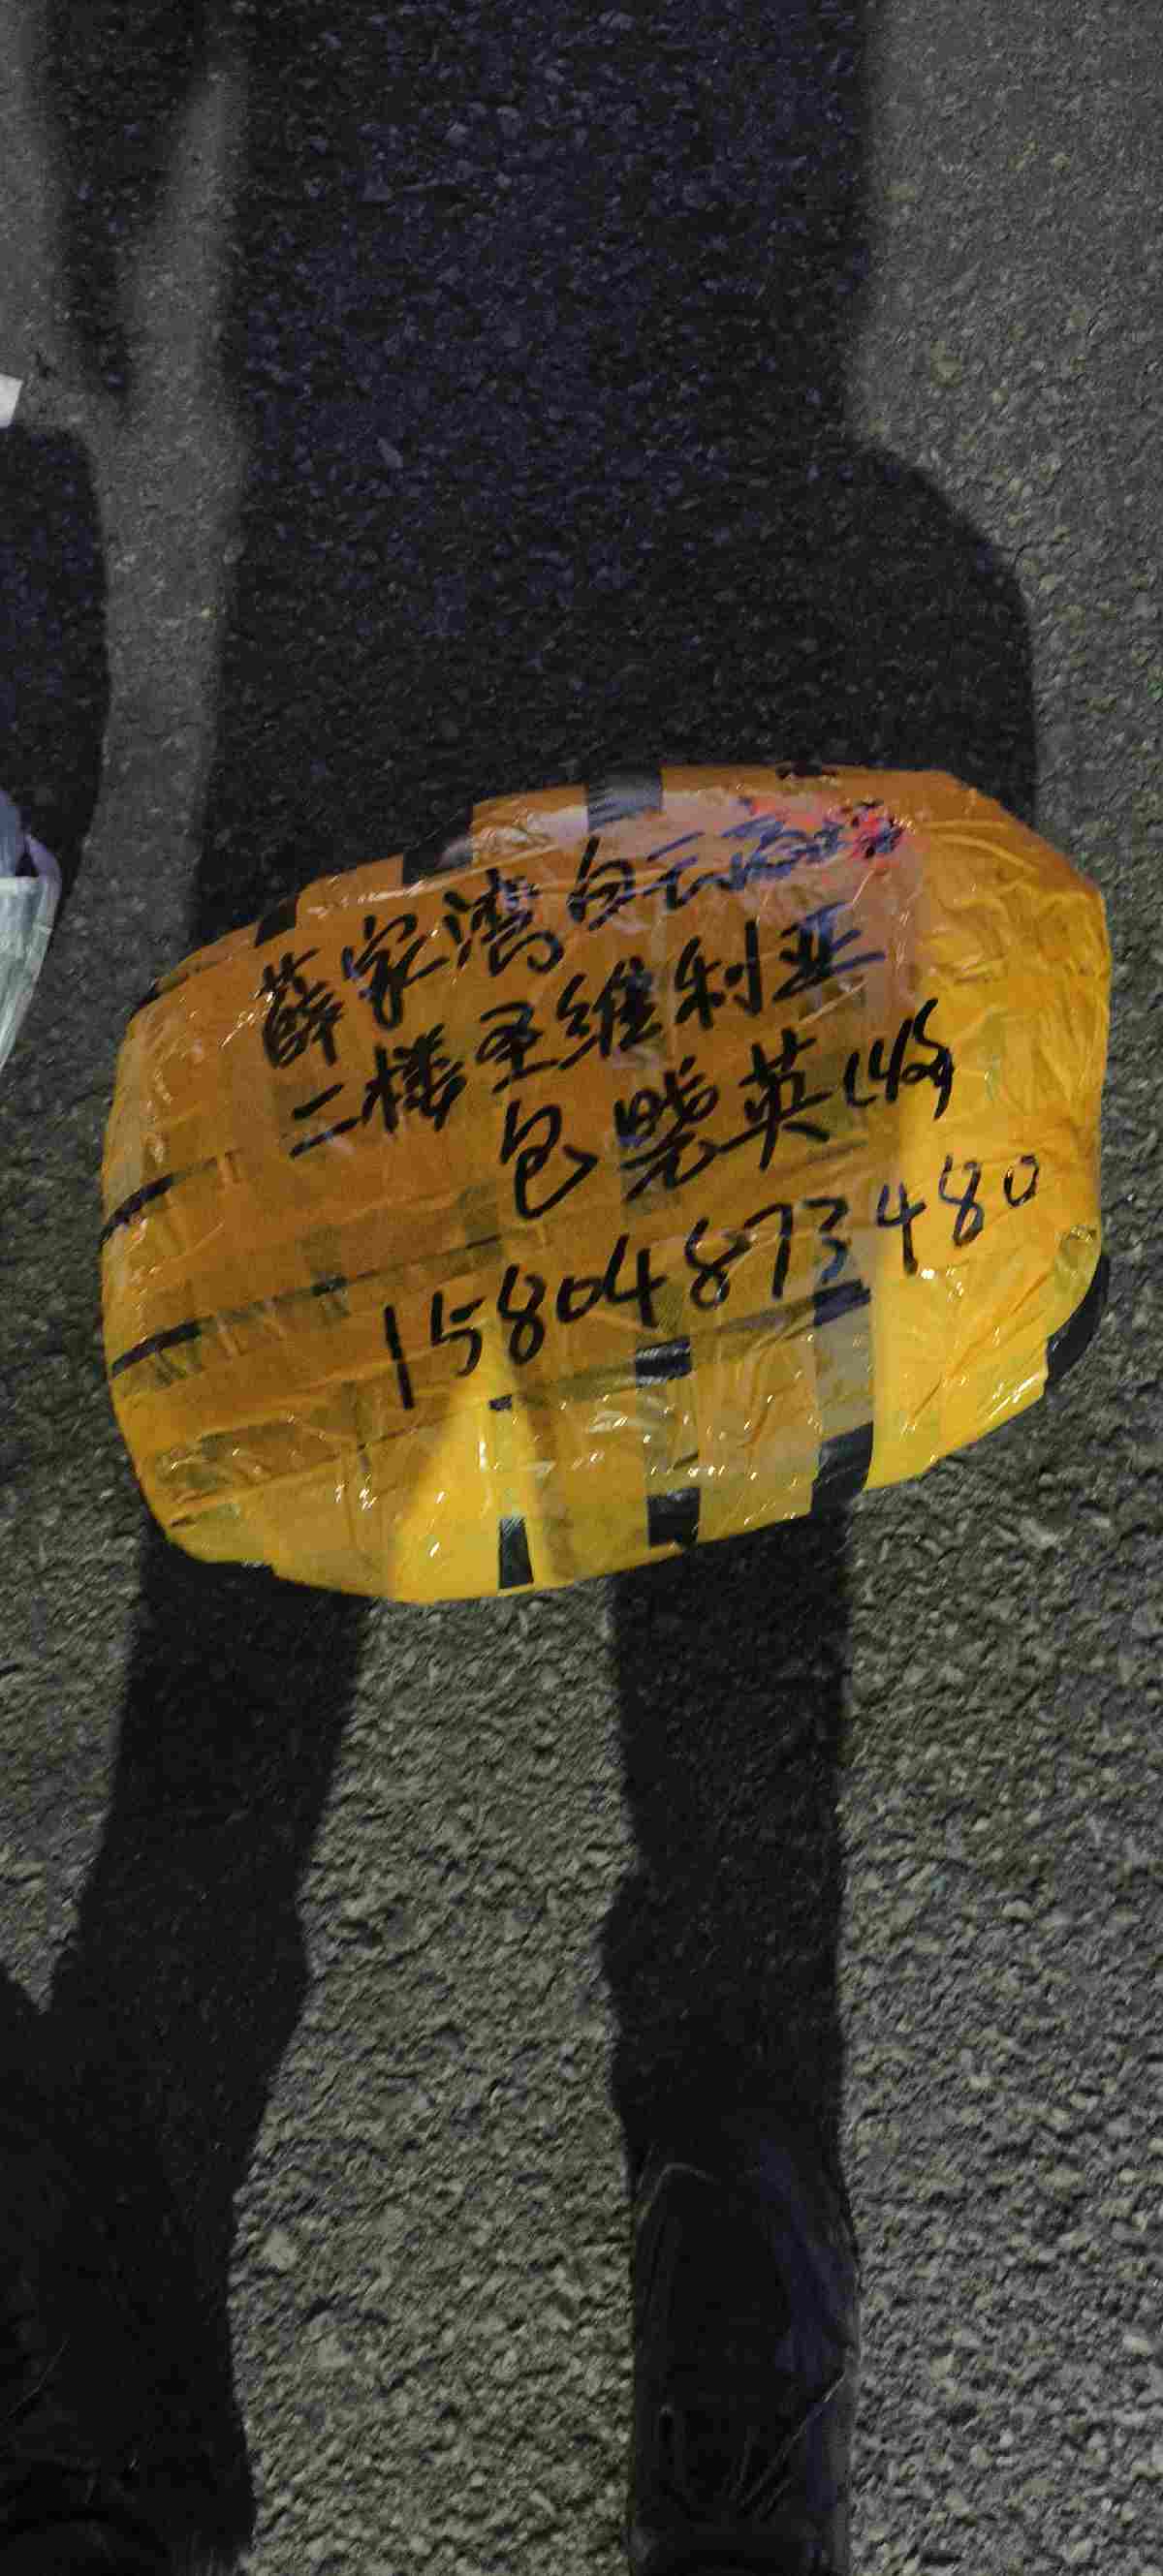 薛家湾白云商场
二楼圣维利亚
包晓英 (145)
15804873480